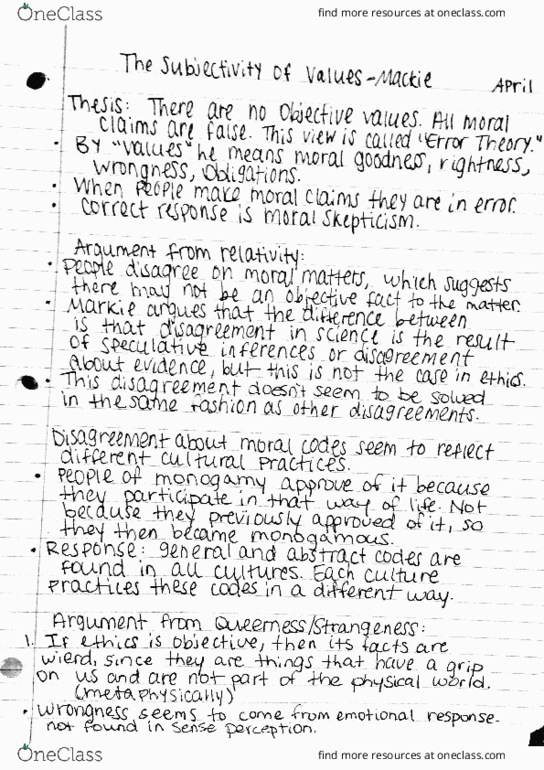 OneClass
find more resources at oneclass.com
The Subjectivity of Values - Mackie April
Thesis: There are no Objective values. All moral
claims are false. This view is called "Error Theory."
• By "values" he means moral goodness, rightness,
wrongness, Obligations.
• When People make moral claims they are in error.
• Correct response is moral skepticism.
Argument from relativity:
• People disagree on moral matters, which suggests
there may not be an objective fact to the matter.
• Markie argues that the difference between
is that disagreement in science is the result
of speculative inferences or disagreement
about evidence, but this is not the case in ethics.
• This disagreement doesn't seem to be solved
in the same fashion as other disagreements.
Disagreement about moral codes seem to reflect
different cultural practices.
• People of monogamy approve of it because
they participate in that way of life. Not
because they previously approved of it, so
they then became monogamous.
• Response: general and abstract codes are
found in all cultures. Each culture
practices these codes in a different way.
Argument from Queerness/Strangeness:
1. If ethics is objective, then its facts are
wierd, since they are things that have a grip
on us and are not part of the physical world.
(metaphysically)
• Wrongness seems to come from emotional response.
not found in sense perception.
OneClass
find more resources at oneclass.com